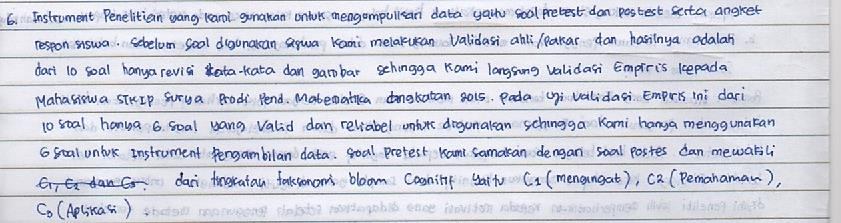 6. Instrument Penelitian yang kami gunakan untuk mengumpulkan data yaitu soal pretest dan postest serta angket
respon siswa. Sebelum soal digunakan siswa kami melakukan validasi ahli/pakar dan hasilnya adalah
dari 10 soal hanya revisi kata-kata dan gambar sehingga kami langsung validasi Empiris kepada
Mahasiswa STKIP Surya Prodi Pend. Matematika angkatan 2015. pada uji validasi Empris ini dari
10 soal hanya 6 soal yang valid dan reliabel untuk digunakan sehingga kami hanya menggunakan
6 soal untuk Instrument Pengambilan data. soal Pretest kami samakan dengan soal postes dan mewakili
C1, C2 dan C3. dari tingkatan taksonomi bloom Cognitif yaitu C1 (mengingat), C2 (Pemahaman),
C3 (Aplikasi)